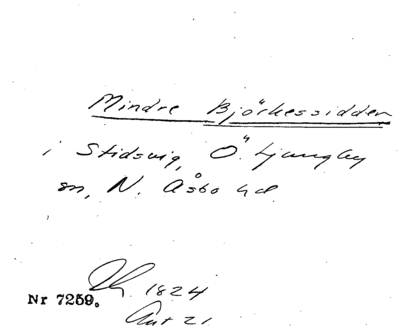 Mindre Björkessidden
i Stidsvig, Ö. Ljungby
sn, N. Åsbo hd
1824
Nr 7259.
21